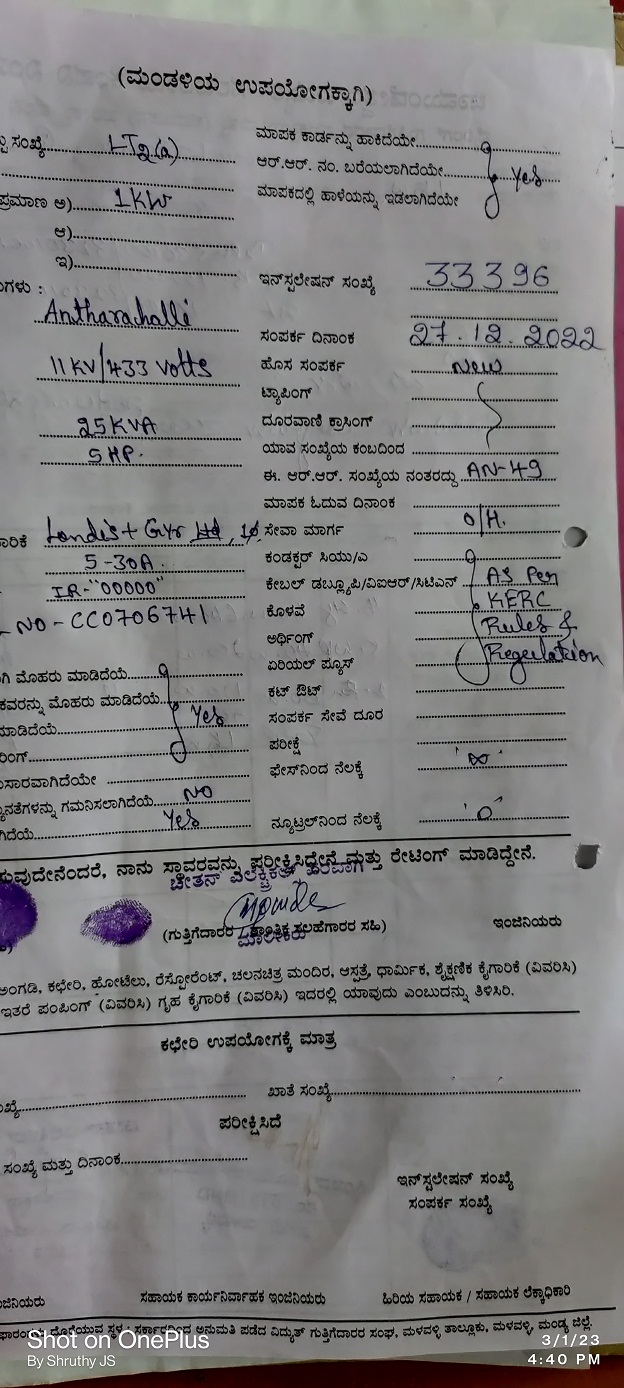 (ಮಂಡಳಿಯ ಉಪಯೋಗಕ್ಕಾಗಿ)
ಸಂಖ್ಯೆ LT2(a)
ಮಾಪಕ ಕಾರ್ಡನ್ನು ಹಾಕಿದೆಯೇ
ಆರ್.ಆರ್. ನಂ. ಬರೆಯಲಾಗಿದೆಯೇ Yes
ಪ್ರಮಾಣ ಅ) 1KW
ಮಾಪಕದಲ್ಲಿ ಹಾಳೆಯನ್ನು ಇಡಲಾಗಿದೆಯೇ
ಆ)
ಇ)
ಇನ್‌ಸ್ಟಲೇಷನ್ ಸಂಖ್ಯೆ 33396
ಗಳು :
Antharahalli
ಸಂಪರ್ಕ ದಿನಾಂಕ 27.12.2022
11KV/433 volts
ಹೊಸ ಸಂಪರ್ಕ New
ಟ್ಯಾಪಿಂಗ್
25KVA
ದೂರವಾಣಿ ಕ್ರಾಸಿಂಗ್
5HP.
ಯಾವ ಸಂಖ್ಯೆಯ ಕಂಬದಿಂದ
ಈ. ಆರ್.ಆರ್. ಸಂಖ್ಯೆಯ ನಂತರದ್ದು AN-49
ಮಾಪಕ ಓದುವ ದಿನಾಂಕ
Landis + Gyr
ಸೇವಾ ಮಾರ್ಗ O/H.
5-30A.
ಕಂಡಕ್ಟರ್ ಸಿಯು/ಎ
IR-"00000"
ಕೇಬಲ್ ಡಬ್ಲ್ಯೂಪಿ/ವಿಐಆರ್/ಸಿಟಿಎನ್ As Per
NO-CC0706741
ಕೊಳವೆ KERC
ಅರ್ಥಿಂಗ್ Rules &
ಏರಿಯಲ್ ಫ್ಯೂಸ್ Regulation
ಮೊಹರು ಮಾಡಿದೆಯೆ
ಕವರನ್ನು ಮೊಹರು ಮಾಡಿದೆಯೆ
ಕಟ್ ಔಟ್
ಮಾಡಿದೆಯೆ Yes
ಸಂಪರ್ಕ ಸೇವೆ ದೂರ
ರಿಂಗ್
ಪರೀಕ್ಷೆ
ಸಾರವಾಗಿದೆಯೇ
ಫೇಸ್‌ನಿಂದ ನೆಲಕ್ಕೆ '∞'
ಗಮನಿಸಲಾಗಿದೆಯೆ NO
Yes
ನ್ಯೂಟ್ರಲ್‌ನಿಂದ ನೆಲಕ್ಕೆ '0'
ನಾನು ಸ್ಥಾವರವನ್ನು ಪರೀಕ್ಷಿಸಿದ್ದೇನೆ ಮತ್ತು ರೇಟಿಂಗ್ ಮಾಡಿದ್ದೇನೆ.
(ಗುತ್ತಿಗೆದಾರರ / ತಾಂತ್ರಿಕ ಸಲಹೆಗಾರರ ಸಹಿ)
ಇಂಜಿನಿಯರು
ಅಂಗಡಿ, ಕಛೇರಿ, ಹೋಟೆಲು, ರೆಸ್ಟೋರೆಂಟ್, ಚಲನಚಿತ್ರ ಮಂದಿರ, ಆಸ್ಪತ್ರೆ, ಧಾರ್ಮಿಕ, ಶೈಕ್ಷಣಿಕ ಕೈಗಾರಿಕೆ (ವಿವರಿಸಿ)
ಇತರೆ ಪಂಪಿಂಗ್ (ವಿವರಿಸಿ) ಗೃಹ ಕೈಗಾರಿಕೆ (ವಿವರಿಸಿ) ಇದರಲ್ಲಿ ಯಾವುದು ಎಂಬುದನ್ನು ತಿಳಿಸಿರಿ.
ಕಛೇರಿ ಉಪಯೋಗಕ್ಕೆ ಮಾತ್ರ
ಖಾತೆ ಸಂಖ್ಯೆ
ಪರೀಕ್ಷಿಸಿದೆ
ಸಂಖ್ಯೆ ಮತ್ತು ದಿನಾಂಕ
ಇನ್‌ಸ್ಟಲೇಷನ್ ಸಂಖ್ಯೆ
ಸಂಪರ್ಕ ಸಂಖ್ಯೆ
ಸಹಾಯಕ ಕಾರ್ಯನಿರ್ವಾಹಕ ಇಂಜಿನಿಯರು
ಹಿರಿಯ ಸಹಾಯಕ / ಸಹಾಯಕ ಲೆಕ್ಕಾಧಿಕಾರಿ
ದೊರೆಯುವ ಸ್ಥಳ : ಸರ್ಕಾರದಿಂದ ಅನುಮತಿ ಪಡೆದ ವಿದ್ಯುತ್ ಗುತ್ತಿಗೆದಾರರ ಸಂಘ, ಮಳವಳ್ಳಿ ತಾಲ್ಲೂಕು, ಮಳವಳ್ಳಿ, ಮಂಡ್ಯ ಜಿಲ್ಲೆ.
Shot on OnePlus
By Shruthy JS
3/1/23
4:40 PM